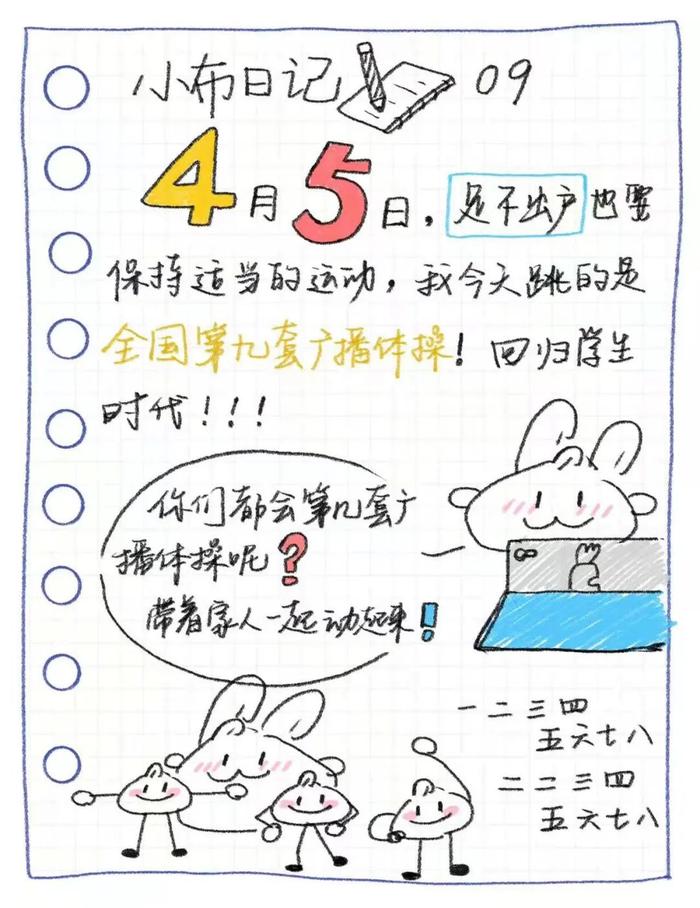 小布日记 09
4月5日，足不出户也要
保持适当的运动，我今天跳的是
全国第九套广播体操！回归学生
时代！！！
你们都会第几套广
播体操呢？
带着家人一起运动起来！
一二三四
五六七八
二二三四
五六七八